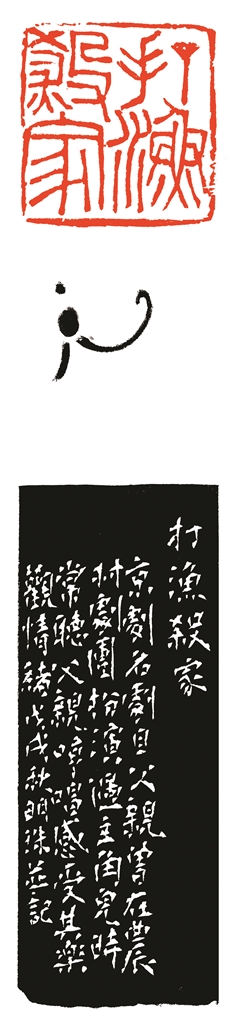 打漁
殺家
打漁殺家
京劇名劇目父親曾在農
村劇團扮演過主角兒時
常聽父親哼唱感受其樂
觀情緒戊戌秋明珠並記